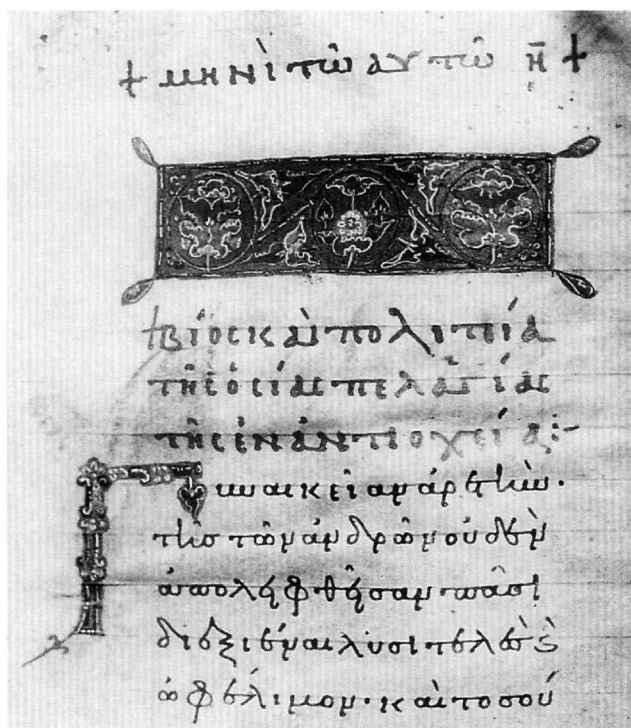 + μηνὶ τῶ αυτῶ η̅ +
+ βίος καὶ πολιτεία
τῆς ὁσίας πελαγίας
τῆς ἐν ἀντιοχεία :-
Γυναικείαν ἀρετὴν·
τῆς τῶν ἀνδρῶν οὐδὲν
ἀποληφθῆσαν πᾶσι
διεξιέναι λυσιτελὲς ϗ̀
ὠφέλιμον· καὶ τοσού